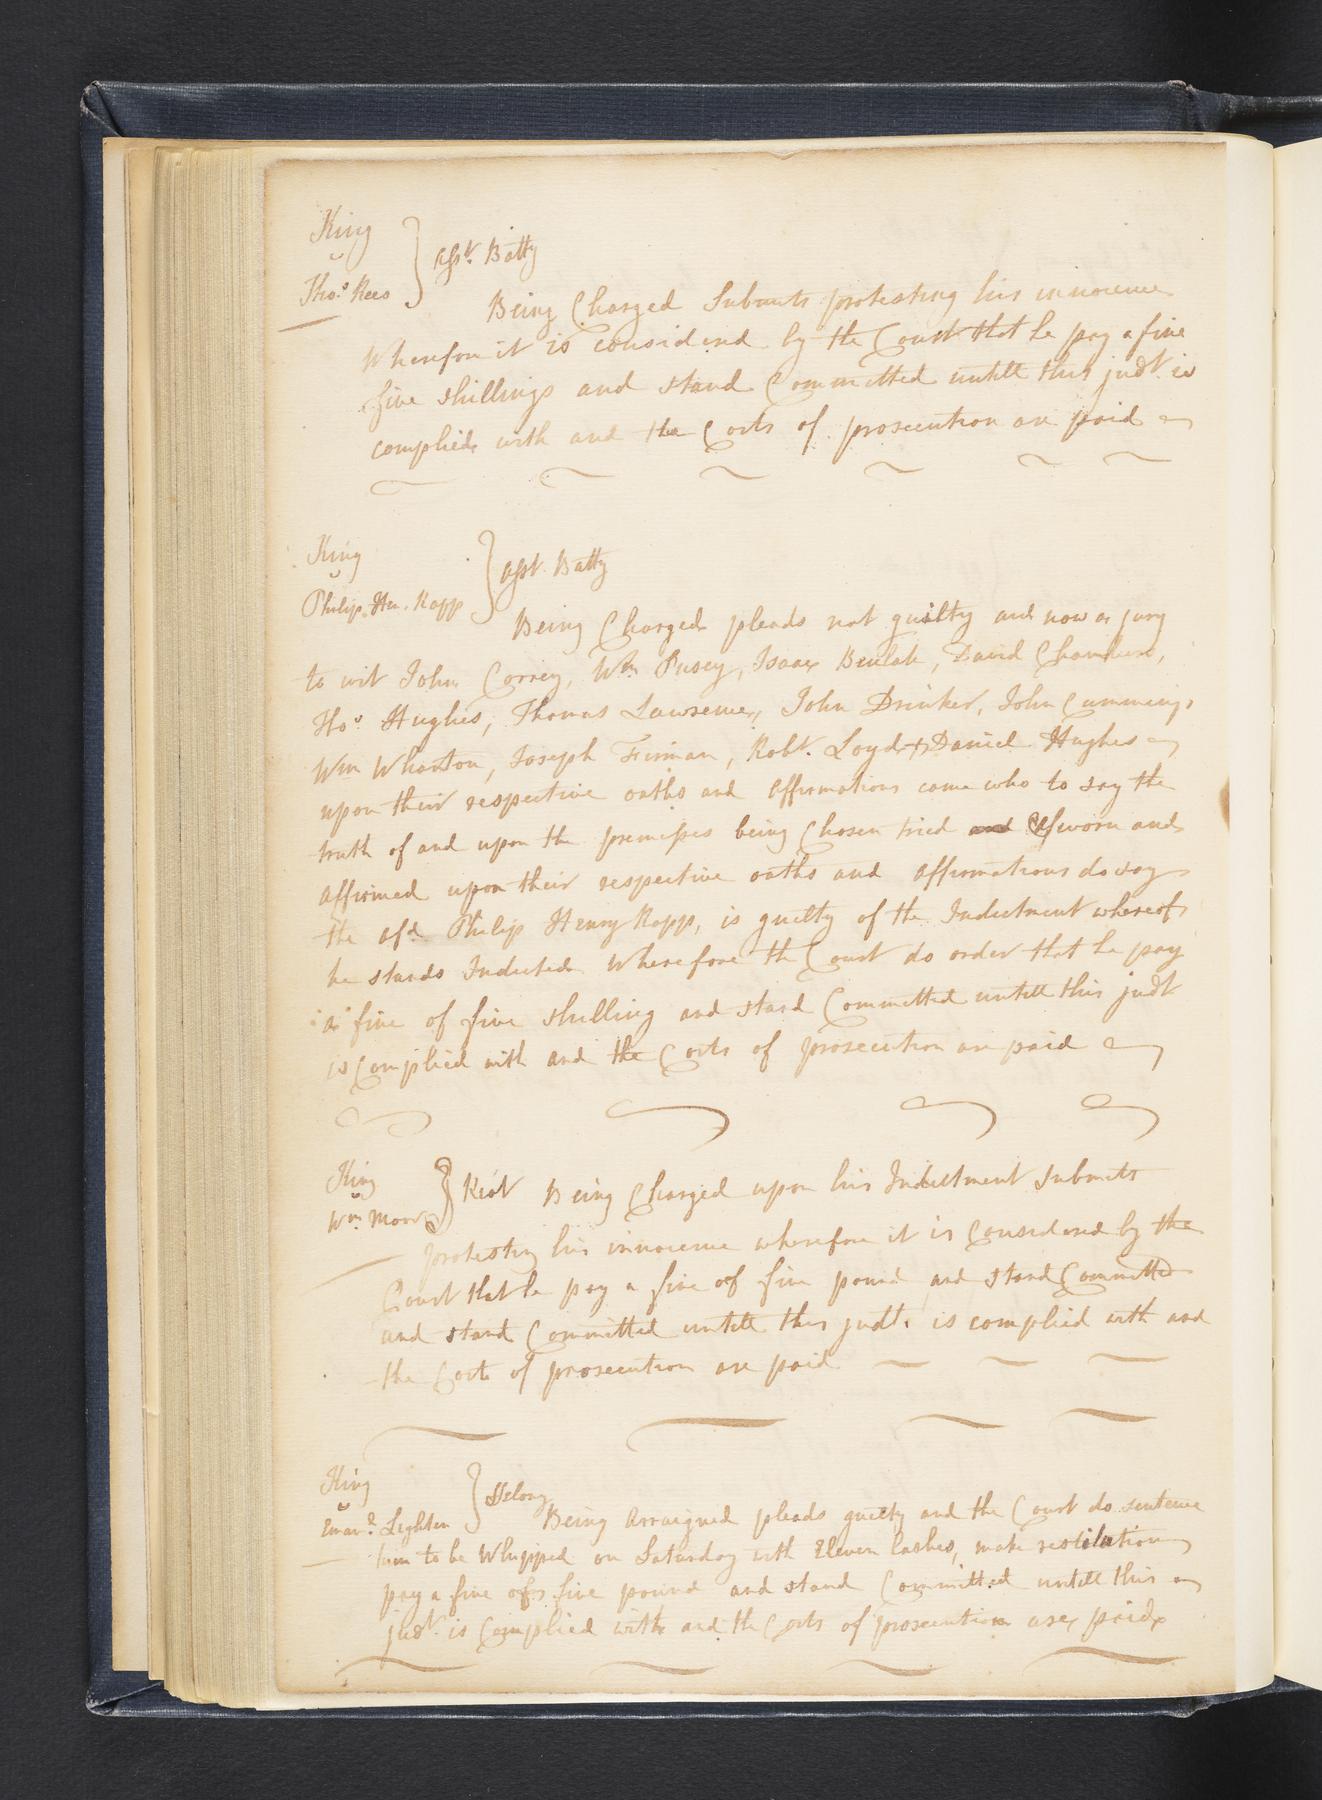 King
v
Thos. Rees } Asst. Batty
Being Charged Submits protesting his innocence
Wherefore it is considered by the Court that he pay a fine
five shillings and stand Committed untill this judt. is
complied with and the Costs of prosecution are paid
King
v
Philip Hen. Rapp } Asst. Batty
Being Charged pleads not guilty and now a jury
to wit John Correy, Wm. Pusey, Isaac Beulah, David Chambers,
Thos. Hughes, Thomas Lawrence, John Drinker, John Cummings
Wm Wharton, Joseph Firman, Robt. Loyd & Daniel Hughes
upon their respective oaths and affirmations came who to say the
truth of and upon the premisses being Chosen tried and Sworn and
affirmed upon their respective oaths and affirmations do say
the afd. Philip Henry Rapp, is guilty of the Indictment whereof
he stands Indicted Wherefore the Court do order that he pay
a fine of five shilling and stand Committed untill this judt
is Complied with and the Costs of prosecution are paid
King
v
Wm. Moore } Riot Being Charged upon his Indictment Submits
protesting his innocence wherefore it is Considered by the
Court that he pay a fine of five pound and stand Committed
and stand Committed untill this judt. is complied with and
the Costs of prosecution are paid
King
v
Emanl. Lighten } Felony
Being Arraigned pleads guilty and the Court do sentence
him to be Whipped on Saturday with Eleven lashes, make restitution
pay a fine of five pound and stand Committed untill this
judt. is Complied with and the Costs of prosecution are paid